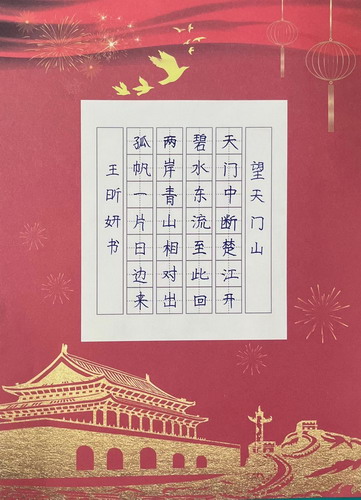 望天门山
天门中断楚江开
碧水东流至此回
两岸青山相对出
孤帆一片日边来
王昕妍书